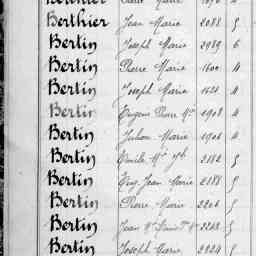 Berthier Jean Marie 2088 5
Bertin Joseph Marie 2989 6
Bertin Pierre Marie 1600 4
Bertin Joseph Marie 1621 4
Bertin Eugène Pierre Mie 1908 4
Bertin Julien Marie 1906 4
Bertin Emile Mie Jh 2182 5
Bertin Guy Jean Marie 2188 5
Bertin Pierre Marie 2206 5
Bertin Jean Mie 2268 5
Bertin Joseph Marie 2924 5